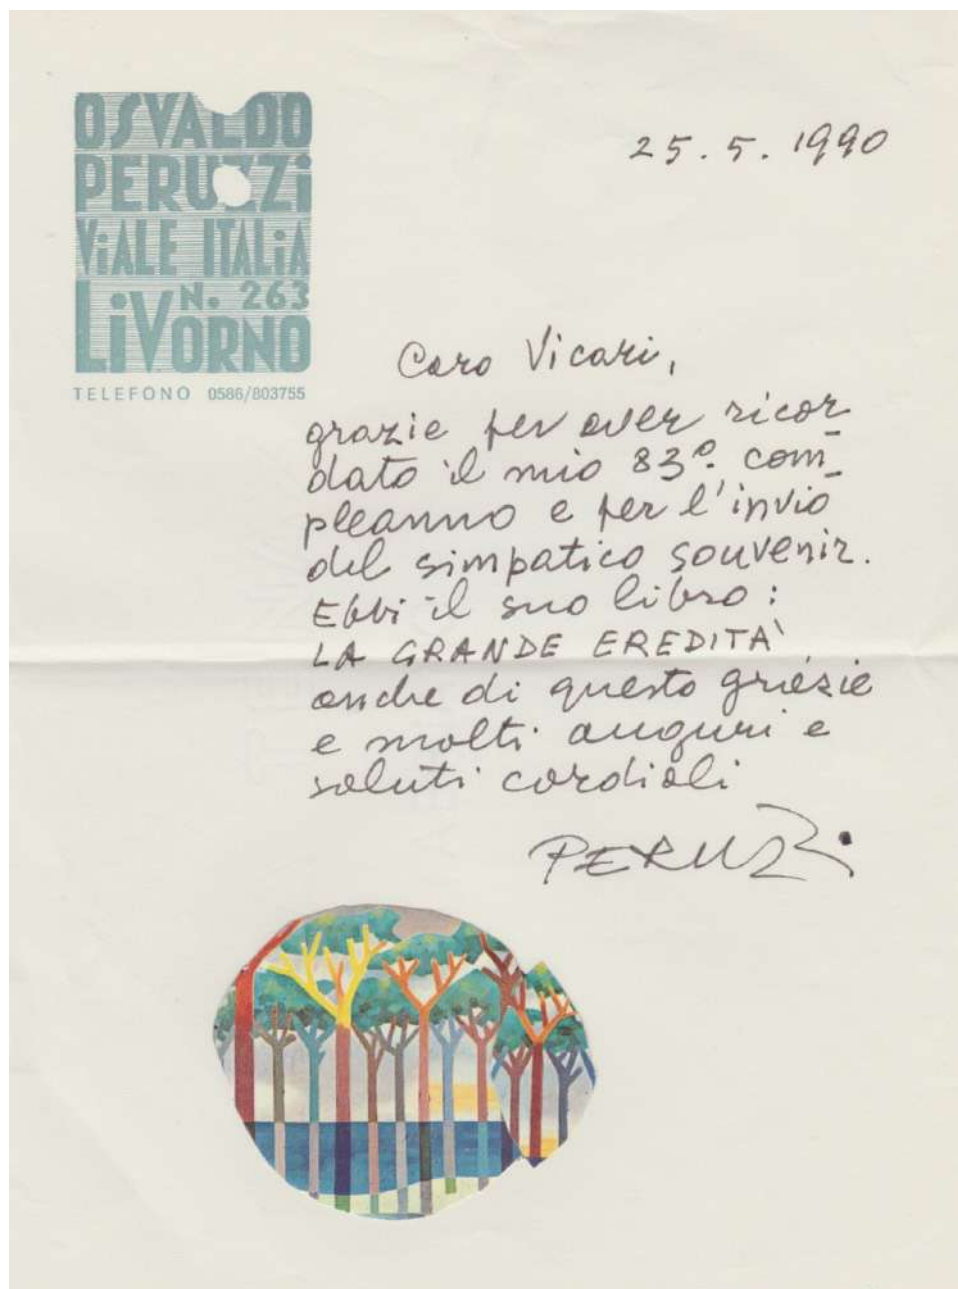 OSVALDO
PERUZZi
ViALE ITALiA
N. 263
LiVORNO
TELEFONO 0586/803755
25.5.1990
Caro Vicari,
grazie per aver ricor
dato il mio 83º com
pleanno e per l'invio
del simpatico souvenir.
Ebbi il suo libro:
LA GRANDE EREDITÀ
anche di questo grazie
e molti auguri e
saluti cordiali
PERUZZi